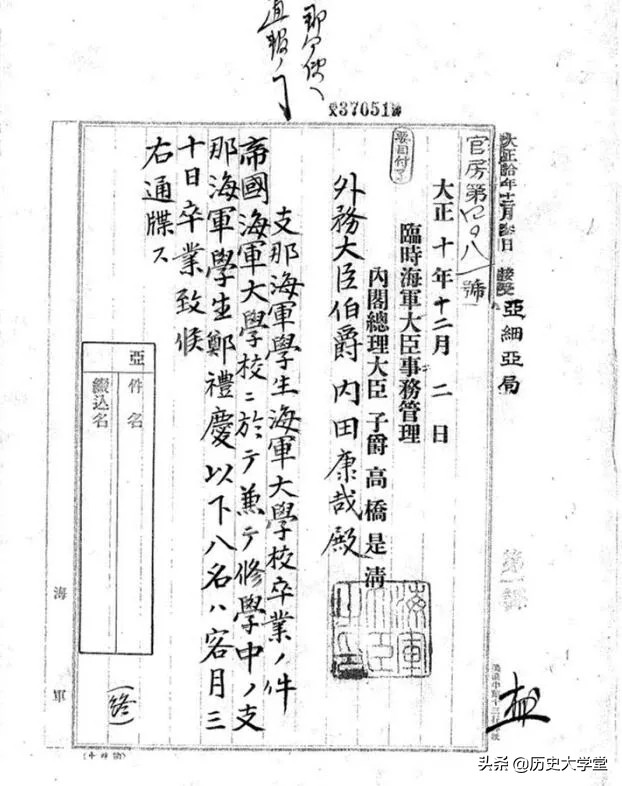 受37051號
大正拾年十二月參日 接受
亞細亞局
官房第四〇八一號
要目付了
大正十年十二月二日
臨時海軍大臣事務管理
內閣總理大臣 子爵 高橋是清
外務大臣伯爵內田康哉殿
支那海軍學生海軍大學校卒業ノ件
帝國海軍大學校ニ於テ兼テ修學中ノ支
那海軍學生鄭禮慶以下八名ハ客月三
十日卒業致候
右通牒ス
亞
件名
綴込名
(終)
海軍
头条 @历史大学堂